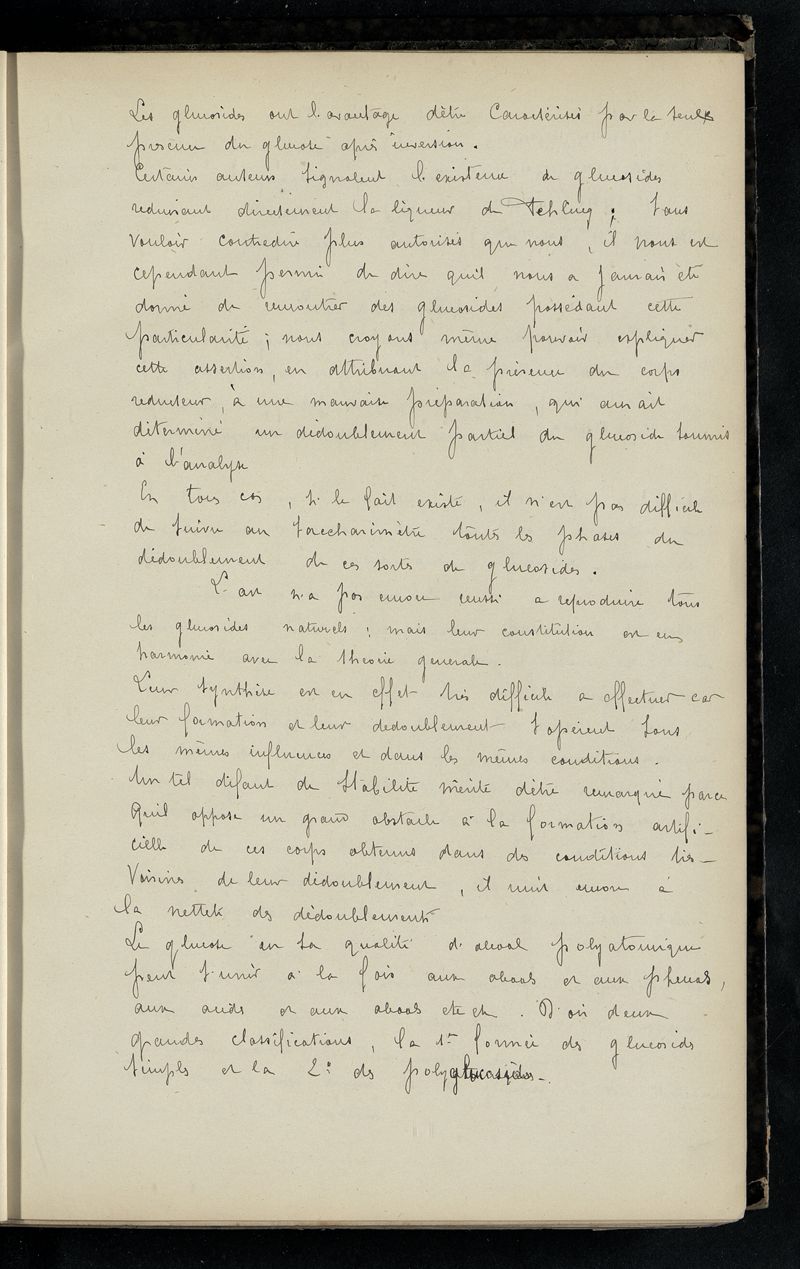 Les glucosides ont l'avantage d'être Caractérisés par la seule
présence du glucose après inversion.
Certains auteurs signalent l'existence de glucosides
reduisant directement la liqueur de Fehling ; sans
vouloir contredire plus autorisés que nous, il nous est
cependant permis de dire qu'il nous a jamais été
donné de rencontrer des glucosides possédant cette
particularité ; nous croyons même pouvoir expliquer
cette assertion, en attribuant la présence du corps
reducteur, à une mauvaise préparation, qui aurait
déterminé un dédoublement partiel du glucoside soumis
à l'analyse
En tous cas, si le fait existe, il n'est pas difficile
de suivre au saccharimètre toutes les phases du
dédoublement de ces sortes de glucosides.
L'art n'a pas encore réussi a reproduire tous
les glucosides naturels ; mais leur constitution est en
harmonie avec la théorie generale.
Leur synthèse est en effet très difficile a effectuer car
leur formation et leur dedoublement s'opèrent sous
les mêmes influences et dans les mêmes conditions.
Un tel défaut de Stabilité mérite d'être remarqué parce
qu'il oppose un grand obstacle à la formation artifi-
cielle de ces corps obtenus dans des conditions très-
Voisines de leur dédoublement, il nuit encore à
la netteté des dédoublements
Le glucose en sa qualité d'alcool polyatomique
peut s'unir à la fois aux alcools et aux phénols,
aux acides et aux alcools etc etc. D'où deux
grandes classifications, la 1re formée des glucosides
simples et la 2e des polyglucosides-.